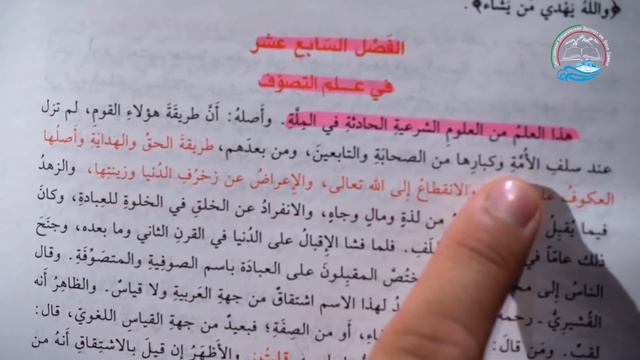 ﴿والله يَهْدي مَن يَشاء﴾.
الفَصْل السَابع عشر
في عـلم التصوّف
هذا العلمُ من العلومِ الشرعيةِ الحادثةِ في المِلَّةِ. وأَصلُهُ: أَنَّ طريقَةَ هؤلاءِ القومِ، لم تزل
عند سلفِ الأُمَّةِ وكبارِها من الصحابَةِ والتابعينَ، ومن بعدَهم، طريقَةَ الحقِّ والهدايَةِ وأَصلُها
العكوفُ والانقطاعُ إلى الله تعالى، والإِعراضُ عن زخرُفِ الدُّنيا وزينتِها، والزهدُ
فيما يُقبِلُ من لذةٍ ومالٍ وجاهٍ، والانفرادُ عن الخلقِ في الخلوةِ للعِبادةِ، وكانَ
ذلك عامّاً في لَفِ. فلما فشا الإِقبالُ على الدُّنيا في القرنِ الثاني وما بعده، وجنَحَ
الناسُ إلى ختصَّ المقبِلونَ على العبادَة باسم الصوفِيةِ والمتصَوِّفَةِ. وقال
القُشيريُّ ـ رحمه دُ لهذا الاسمِ اشتقاقٌ من جهةِ العَربيةِ ولا قياسٌ. والظاهرُ أَنه
لقبٌ. ومَن قالَ: اءِ، أو من الصِفَة؛ فبعيدٌ من جهةِ القياسِ اللغويِّ، قال:
والأَظهَرُ إن قيلَ بالاشتِقاقِ أَنهُ من